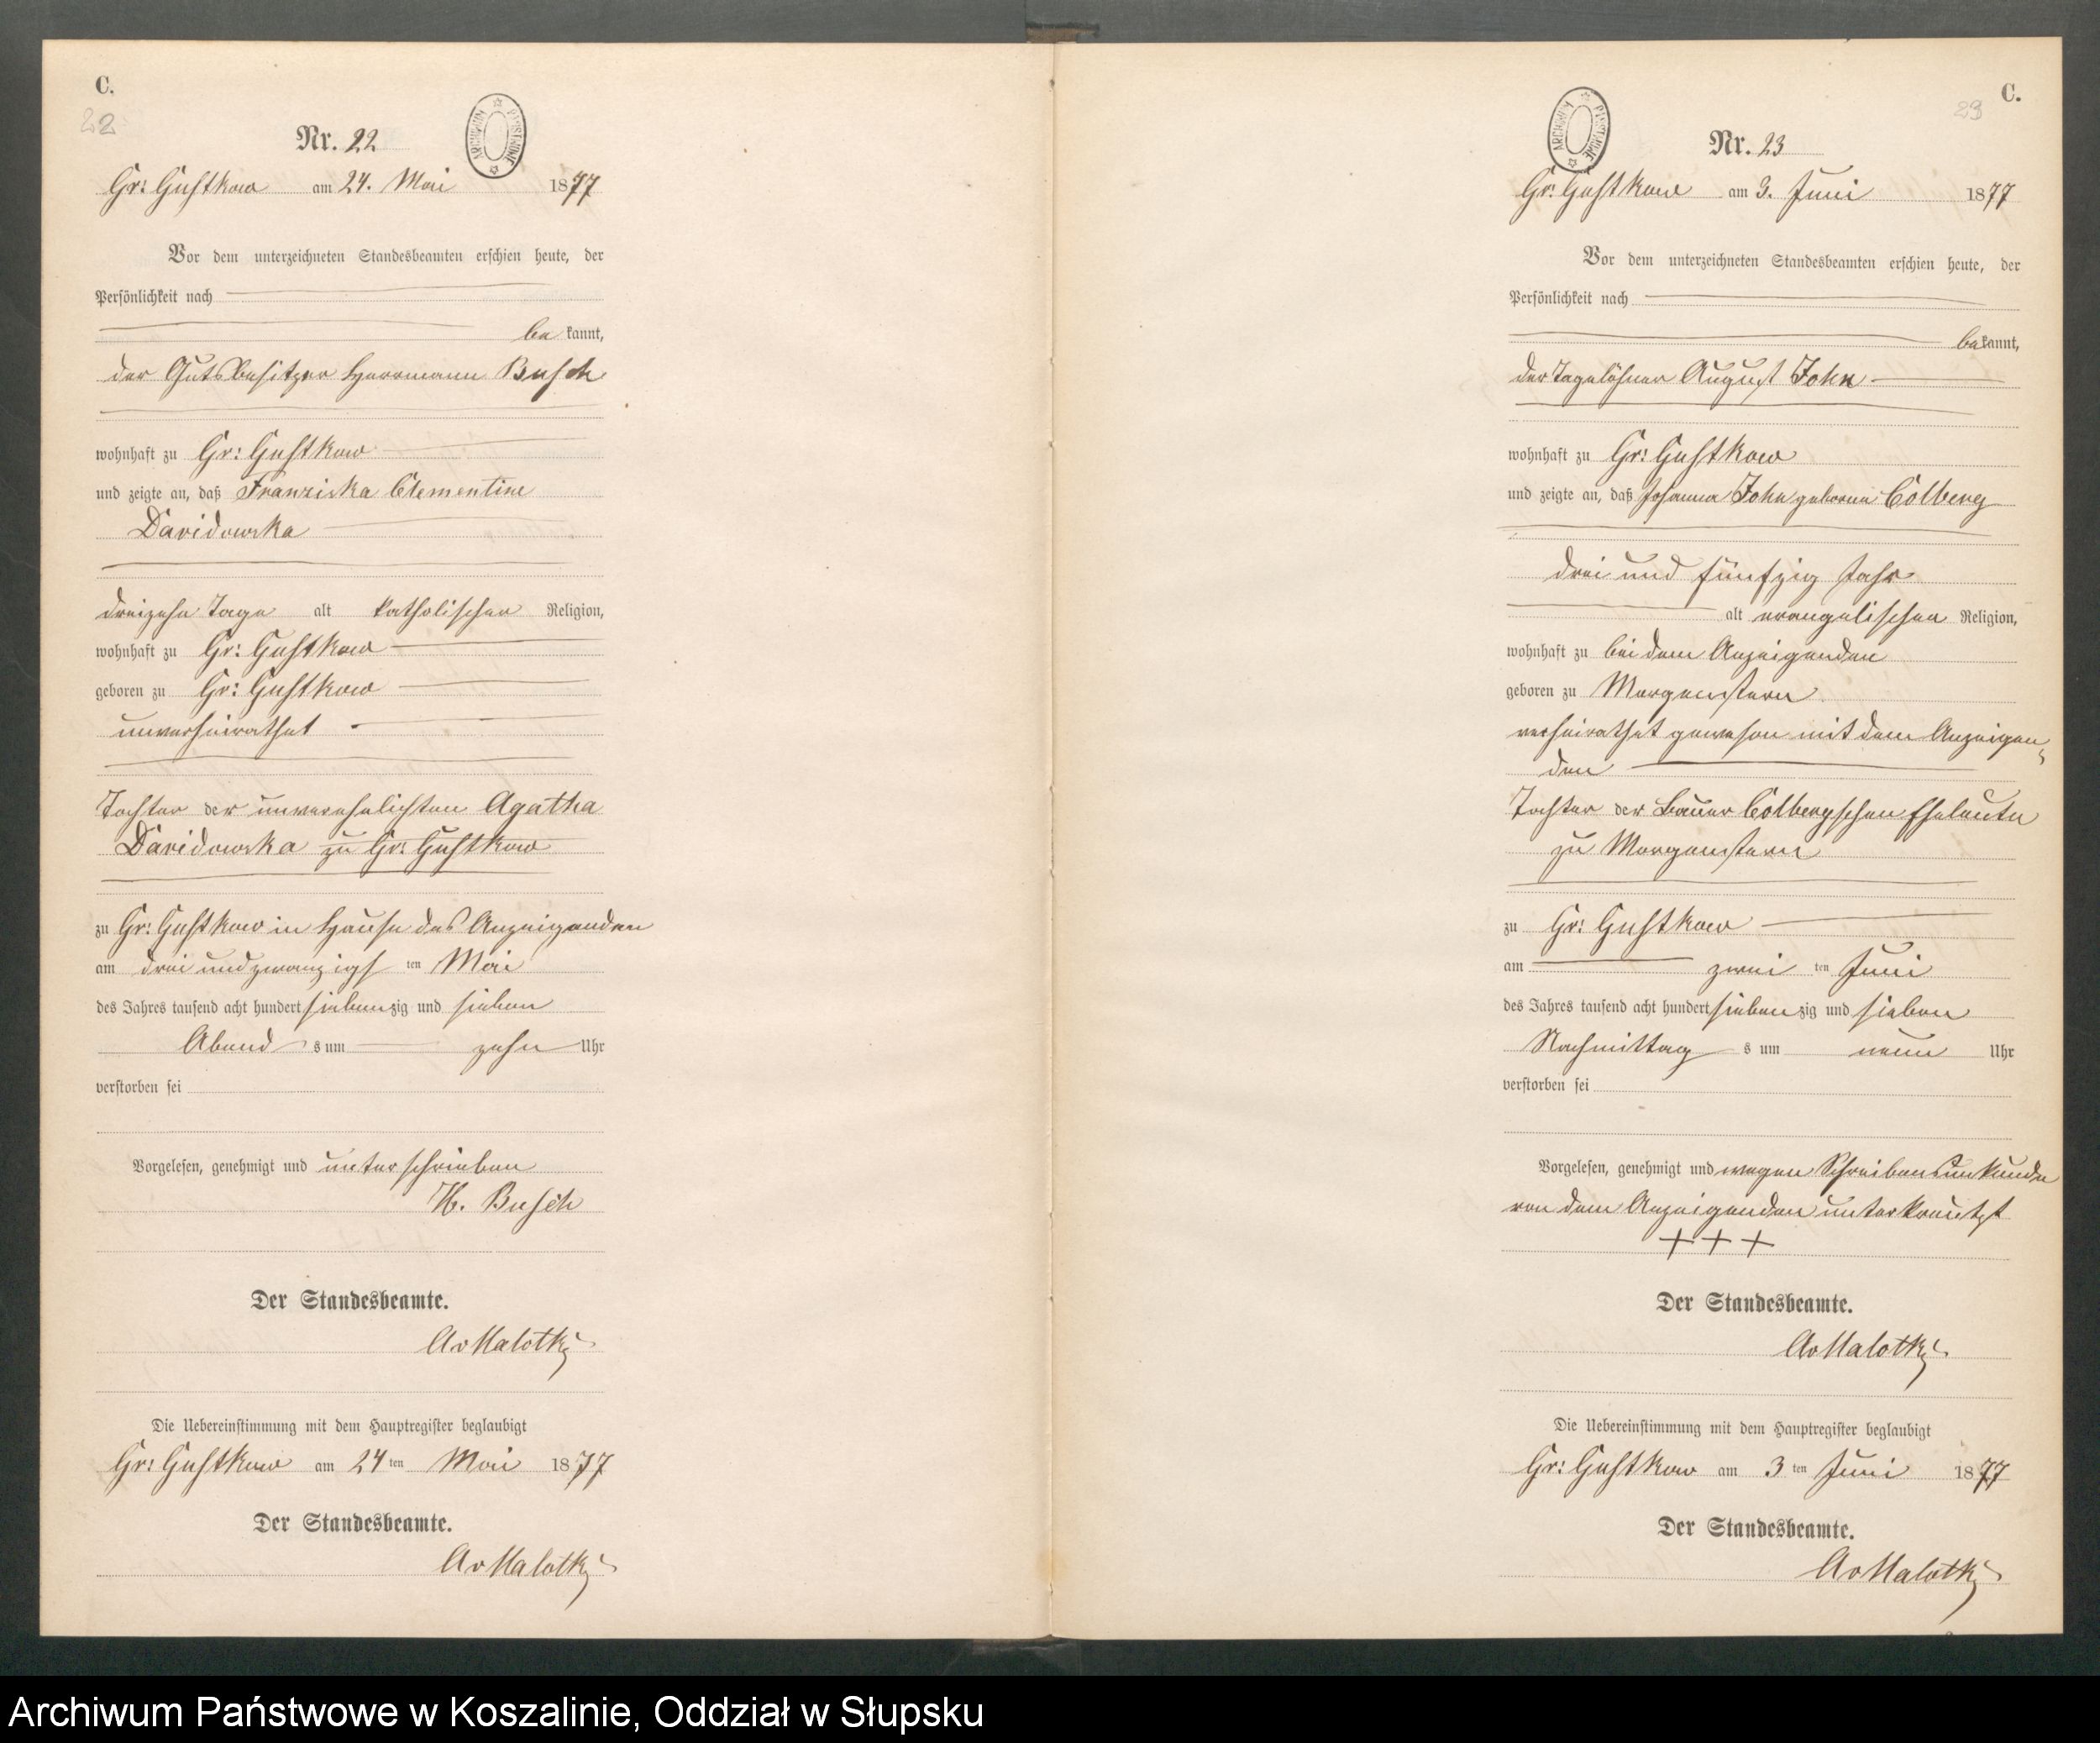 C.
22
Nr. 22
ARCHIWUM PAŃSTWOWE
Gr: Gustkow am 24. Mai 1877
Vor dem unterzeichneten Standesbeamten erschien heute, der
Persönlichkeit nach
be kannt,
der Gutsbesitzer Herrmann Busch
wohnhaft zu Gr: Gustkow
und zeigte an, daß Franziska Clementine
Davidowska
dreizehn Tage alt katholischer Religion,
wohnhaft zu Gr: Gustkow
geboren zu Gr: Gustkow
unverheirathet
Tochter der unverehelichten Agatha
Davidowska zu Gr: Gustkow
zu Gr: Gustkow im Hause des Anzeigenden
am drei und zwanzigs ten Mai
des Jahres tausend acht hundert sieben zig und sieben
Abend s um zehn Uhr
verstorben sei
Vorgelesen, genehmigt und unterschrieben
H. Busch
Der Standesbeamte.
AvMalotky
Die Uebereinstimmung mit dem Hauptregister beglaubigt
Gr: Gustkow am 24 ten Mai 1877
Der Standesbeamte.
AvMalotky
C.
23
Nr. 23
ARCHIWUM PAŃSTWOWE
Gr: Gustkow am 3. Juni 1877
Vor dem unterzeichneten Standesbeamten erschien heute, der
Persönlichkeit nach
be kannt,
der Tagelöhner August John
wohnhaft zu Gr: Gustkow
und zeigte an, daß Johanna John geborene Colberg
drei und fünfzig Jahr
alt evangelischen Religion,
wohnhaft zu bei dem Anzeigenden
geboren zu Morgenstern
verheirathet gewesen mit dem Anzeigen-
den
Tochter der Bauer Colbergschen Eheleute
zu Morgenstern
zu Gr: Gustkow
am zwei ten Juni
des Jahres tausend acht hundert sieben zig und sieben
Nachmittag s um neun Uhr
verstorben sei
Vorgelesen, genehmigt und wegen Schreibensunkunde
von dem Anzeigenden unterkreuzt
+ + +
Der Standesbeamte.
AvMalotky
Die Uebereinstimmung mit dem Hauptregister beglaubigt
Gr: Gustkow am 3 ten Juni 1877
Der Standesbeamte.
AvMalotky
Archiwum Państwowe w Koszalinie, Oddział w Słupsku